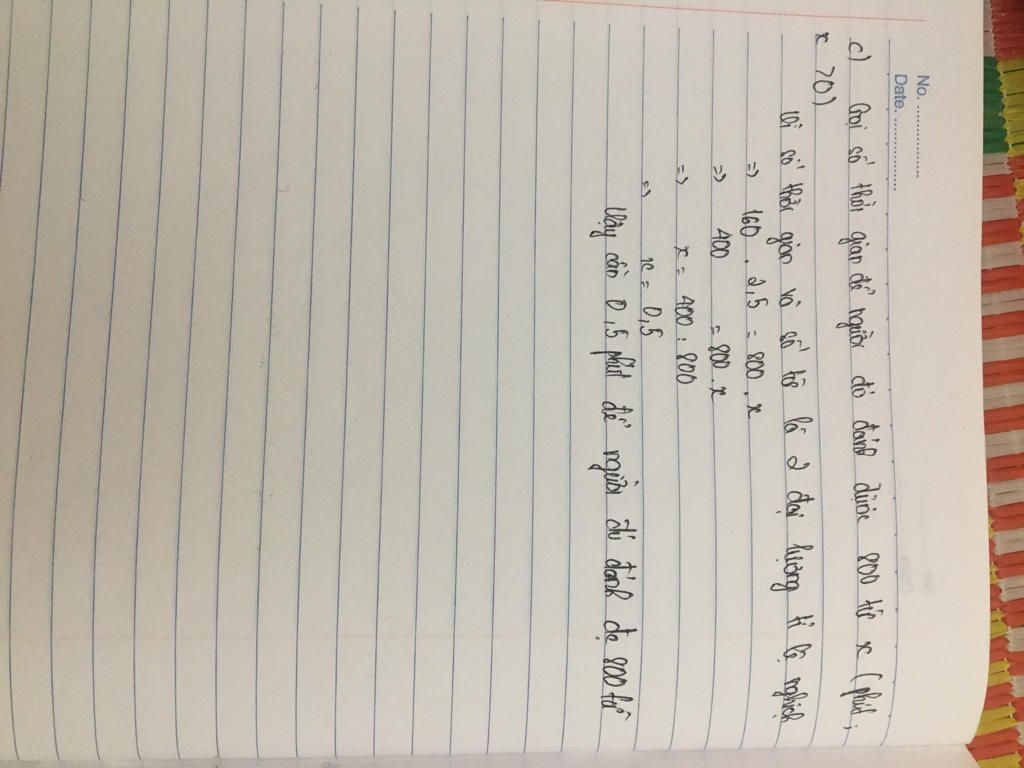 No. ..................
Date. ..................
c) Gọi số thời gian để người đó đánh được 800 từ x (phút;
x > 0)
Vì số thời gian và số từ là 2 đại lượng tỉ lệ nghịch
=> 160 . 2,5 = 800 . x
=> 400 = 800 . x
=> x = 400 : 800
=> x = 0,5
Vậy cần 0,5 phút để người đó đánh đc 800 từ